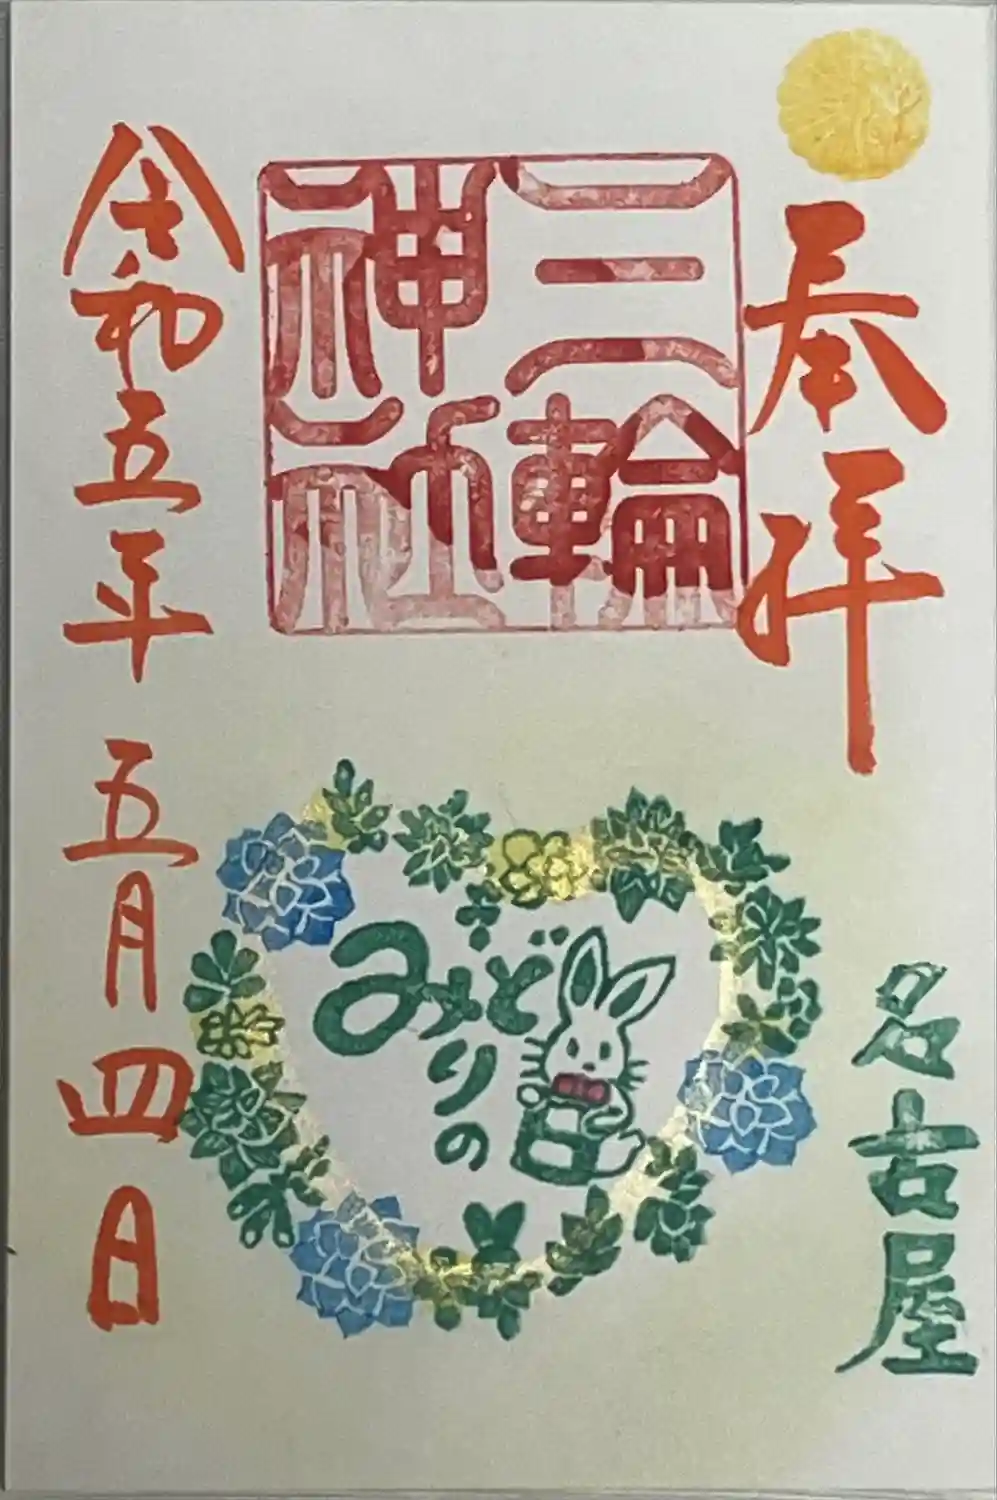 奉拝
名古屋
三輪
神社
みどりの
令和五年 五月四日